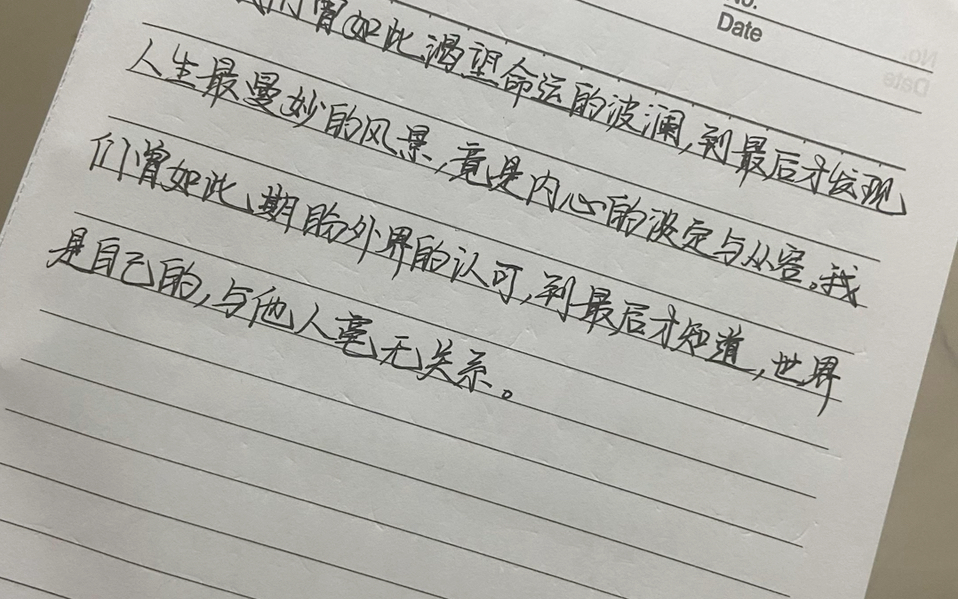 No.
Date
我们曾如此渴望命运的波澜,到最后才发现
人生最曼妙的风景,竟是内心的淡定与从容。我
们曾如此期盼外界的认可,到最后才知道,世界
是自己的,与他人毫无关系。